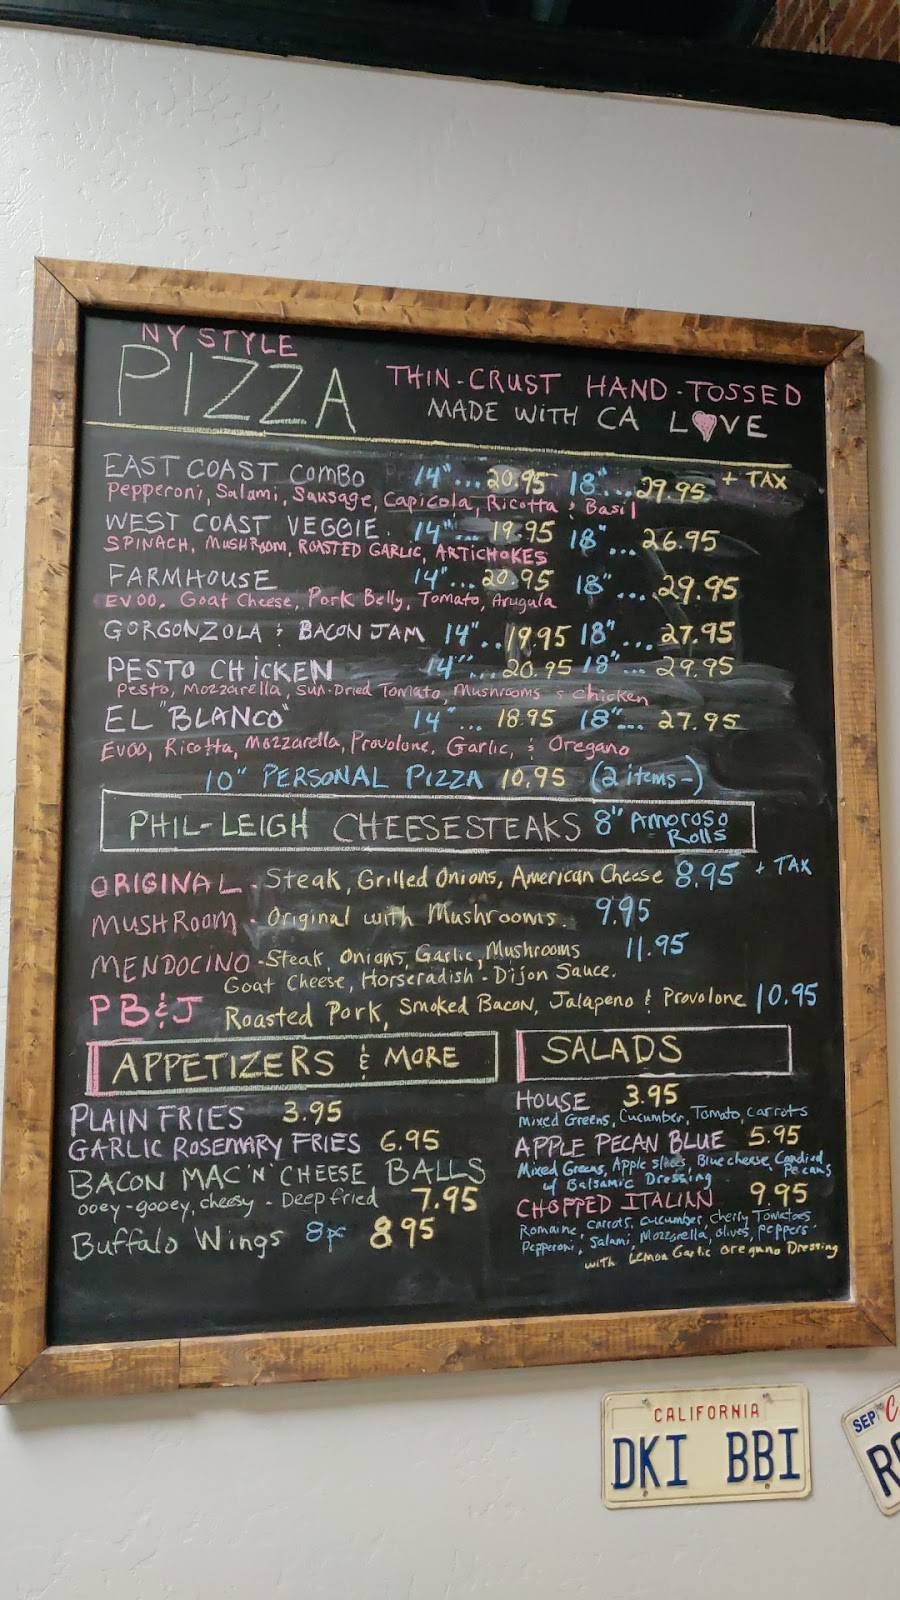 NY STYLE
PIZZA
THIN-CRUST HAND-TOSSED
MADE WITH CA LOVE
EAST COAST COMBO 14"...20.95 18"...29.95 + TAX
Pepperoni, Salami, Sausage, Capicola, Ricotta & Basil
WEST COAST VEGGIE. 14"... 19.95 18"...26.95
SPINACH, MUSHROOM, ROASTED GARLIC, ARTICHOKES
FARMHOUSE 14"...20.95 18"....29.95
EVOO, Goat Cheese, Pork Belly, Tomato, Arugula
GORGONZOLA & BACON JAM 14"..19.95 18"...27.95
PESTO CHICKEN 14"...20.95 18"... 29.95
Pesto, Mozzarella, Sun-Dried Tomato, Mushrooms & Chicken
EL "BLANCO" 14"... 18.95 18"... 27.95
EVOO, Ricotta, Mozzarella, Provolone, Garlic, & Oregano
10" PERSONAL PIZZA 10.95 (2 items-)
PHIL-LEIGH CHEESESTEAKS 8" Amoroso Rolls
ORIGINAL - Steak, Grilled Onions, American Cheese 8.95 + TAX
MUSHROOM - Original with Mushrooms. 9.95
MENDOCINO - Steak, Onions, Garlic, Mushrooms 11.95
Goat Cheese, Horseradish-Dijon Sauce.
PB&J Roasted Pork, Smoked Bacon, Jalapeno & Provolone 10.95
APPETIZERS & MORE
PLAIN FRIES 3.95
GARLIC ROSEMARY FRIES 6.95
BACON MAC 'N' CHEESE BALLS
ooey-gooey, cheesy - Deep fried 7.95
Buffalo Wings 8pc 8.95
SALADS
HOUSE 3.95
Mixed Greens, Cucumber, Tomato, Carrots
APPLE PECAN BLUE 5.95
Mixed Greens, Apple slices, Blue cheese, Candied Pecans
w/ Balsamic Dressing
CHOPPED ITALIAN 9.95
Romaine, carrots, cucumber, Cherry Tomatoes
Pepperoni, Salami, Mozzarella, olives, Peppers.
with Lemon Garlic oregano Dressing
CALIFORNIA
DKI BBI
SEP